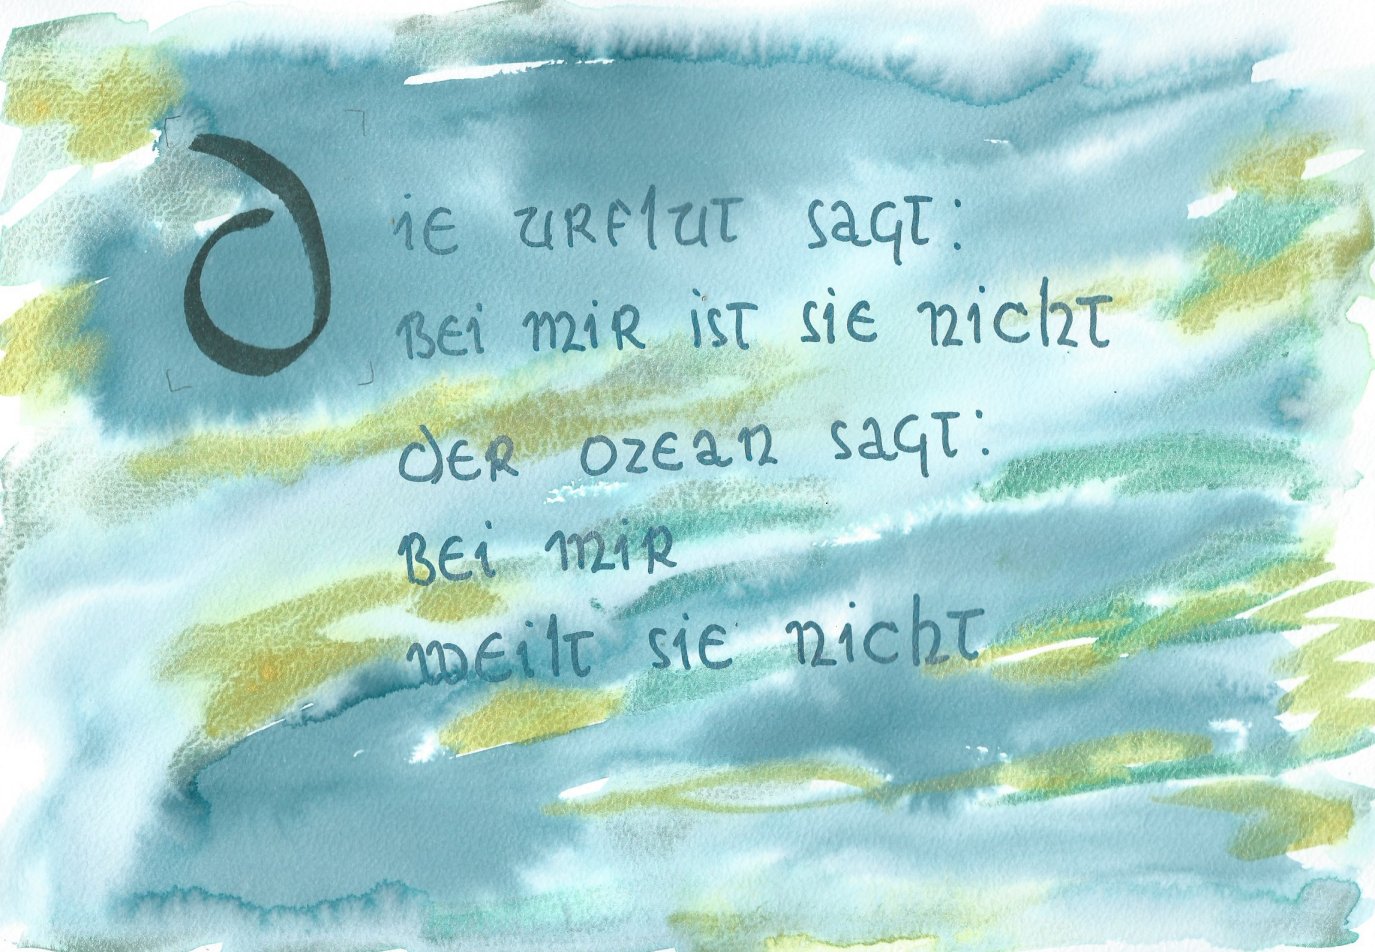 Die Urflut sagt:
Bei mir ist sie nicht
der Ozean sagt:
Bei mir
weilt sie nicht